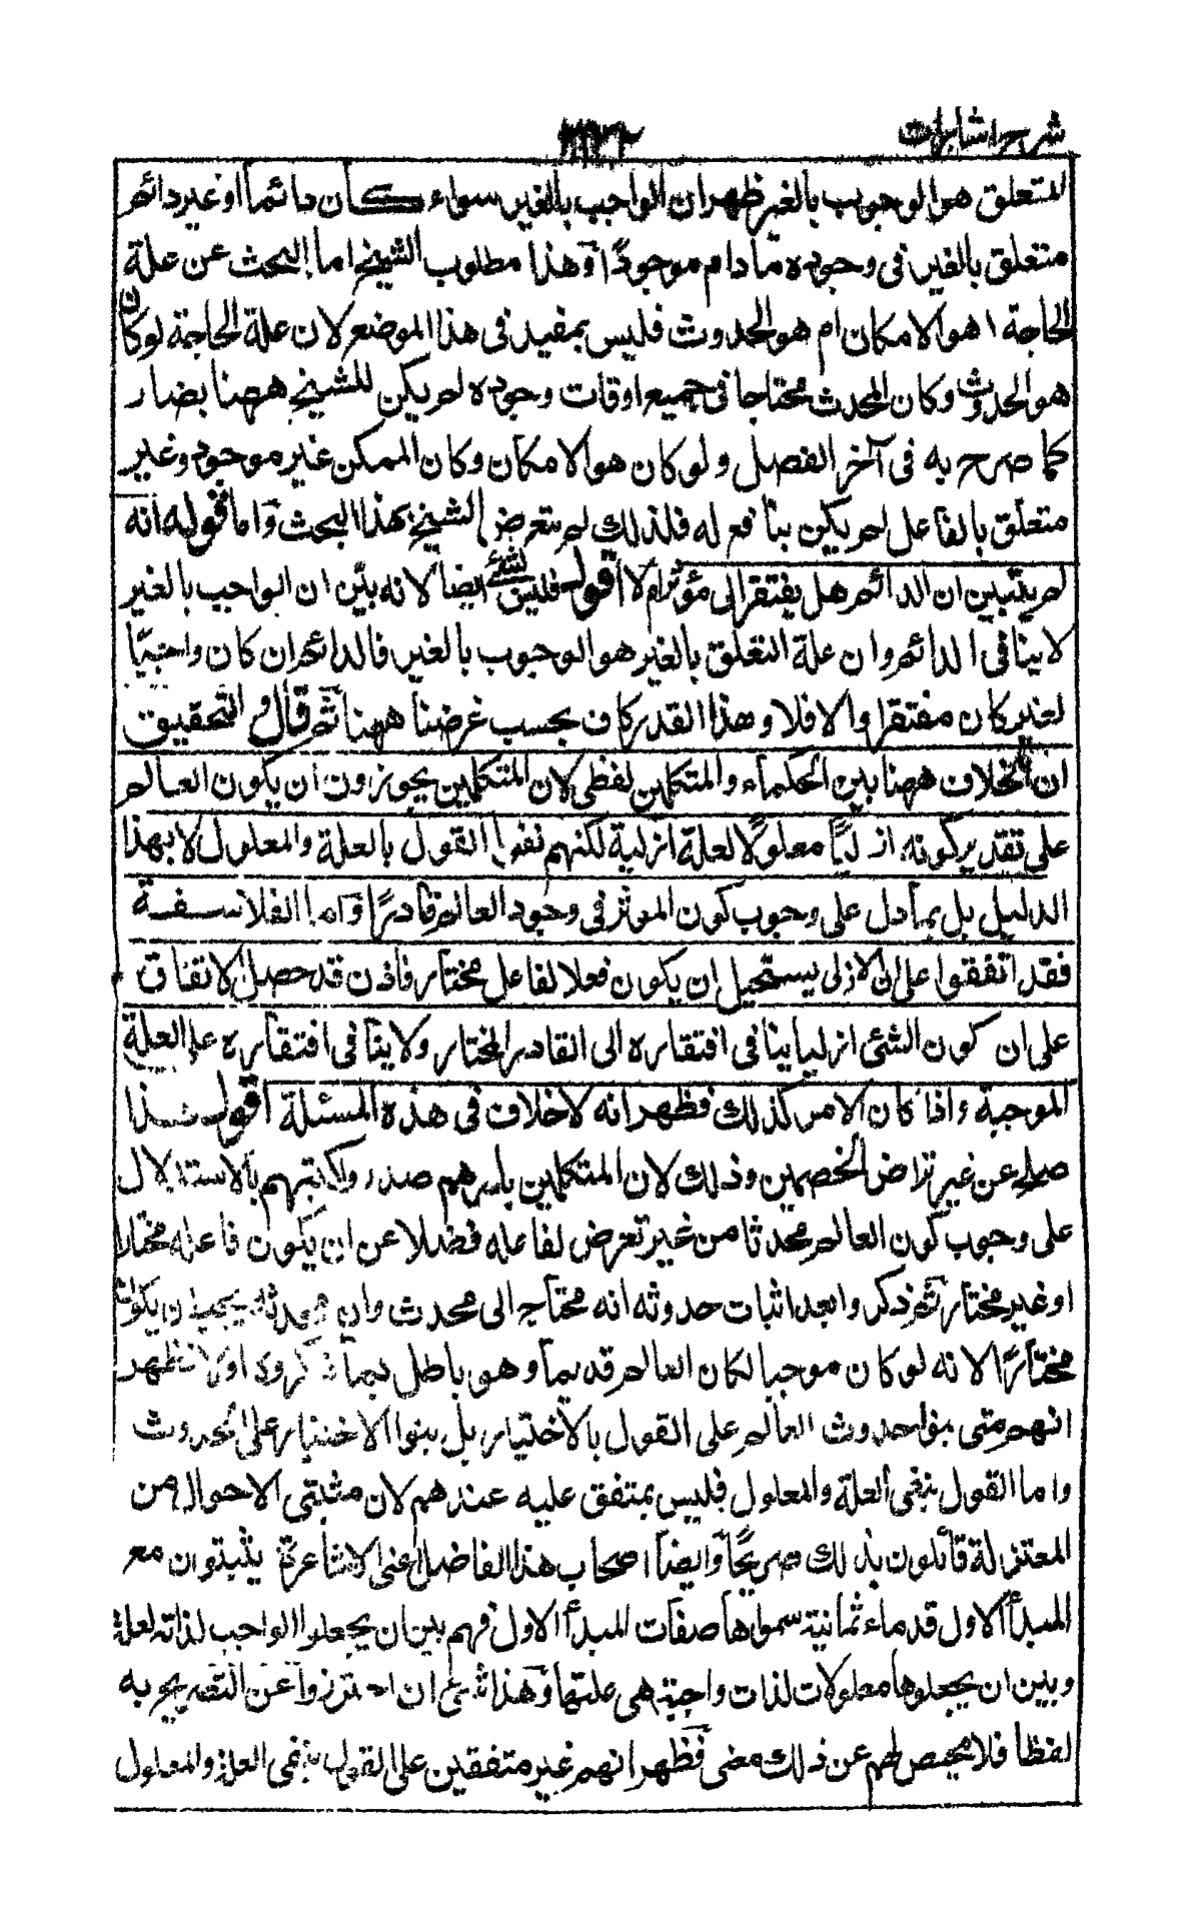 شرح اشارات
المتعلق هو الوجوب بالغير ظهر ان الواجب بالغير سواء كان دائما او غير دائم
متعلق بالغير فى وجوده ما دام موجودًا وهذا مطلوب الشيخ اما البحث عن علة
الحاجة اهو الامكان ام هو الحدوث فليس بمفيد فى هذا الموضع لان علة الحاجة لو كان
هو الحدوث وكان المحدث محتاجا فى جميع اوقات وجوده لم يكن للشيخ ههنا بضار
كما صرح به فى آخر الفصل ولو كان هو الامكان وكان الممكن غير موجود وغير
متعلق بالفاعل لم يكن بنافع له فلذلك لم يتعرض الشيخ بهذا البحث واما قوله انه
لم يتبين ان الدائم هل يفتقر الى مؤثر ام لا اقول فليس بشئ ايضا لانه بيّن ان الواجب بالغير
لا ينافى الدائم وان علة التعلق بالغير هو الوجوب بالغير فالدائم ان كان واجبًا
لغيره كان مفتقرا والا فلا وهذا القدر كاف بحسب غرضنا ههنا ثم قال والتحقيق
ان الخلاف ههنا بين الحكماء والمتكلمين لفظى لان المتكلمين يجوزون ان يكون العالم
على تقدير كونه ازليًا معلولًا لعلة ازلية لكنهم نفوا القول بالعلة والمعلول لا بهذا
الدليل بل بما دل على وجوب كون الموثر فى وجود العالم قادرًا واما الفلاسفة
فقد اتفقوا على ان الازلى يستحيل ان يكون فعلا لفاعل مختار فاذن قد حصل الاتفاق
على ان كون الشئ ازليا ينافى افتقاره الى القادر المختار ولا ينافى افتقاره على العلة
الموجبة واذا كان الامر كذلك فظهر انه لا خلاف فى هذه المسئلة اقول هذا
صلح عن غير تراض الخصمين وذلك لان المتكلمين باسرهم صدروا كتبهم بالاستدلال
على وجوب كون العالم محدثا من غير تعرض لفاعله فضلا عن ان يكون فاعله مختارا
او غير مختار ثم ذكروا بعد اثبات حدوثه انه محتاج الى محدث وان محدثه يجب ان يكون
مختارًا لانه لو كان موجبا لكان العالم قديما وهو باطل بما ذكروه اولا فظهر
انهم متى بنوا حدوث العالم على القول بالاختيار بل بنوا الاختيار على الحدوث
واما القول بنفى العلة والمعلول فليس بمتفق عليه عندهم لان مثبتى الاحوال من
المعتزلة قائلون بذلك صريحًا وايضا اصحاب هذا الفاضل اعنى الاشاعرة يثبتون مع
المبدأ الاول قدماء ثمانية سموها صفات المبدأ الاول فهم بين ان يجعلوا الواجب لذاته لعلة
وبين ان يجعلوها معلولات لذات واجبة هى علتها وهذا شئ ان احترزوا عن التصريح به
لفظا فلا محيص لهم عن ذلك معنى فظهر انهم غير متفقين على القول بنفى العلة والمعلول